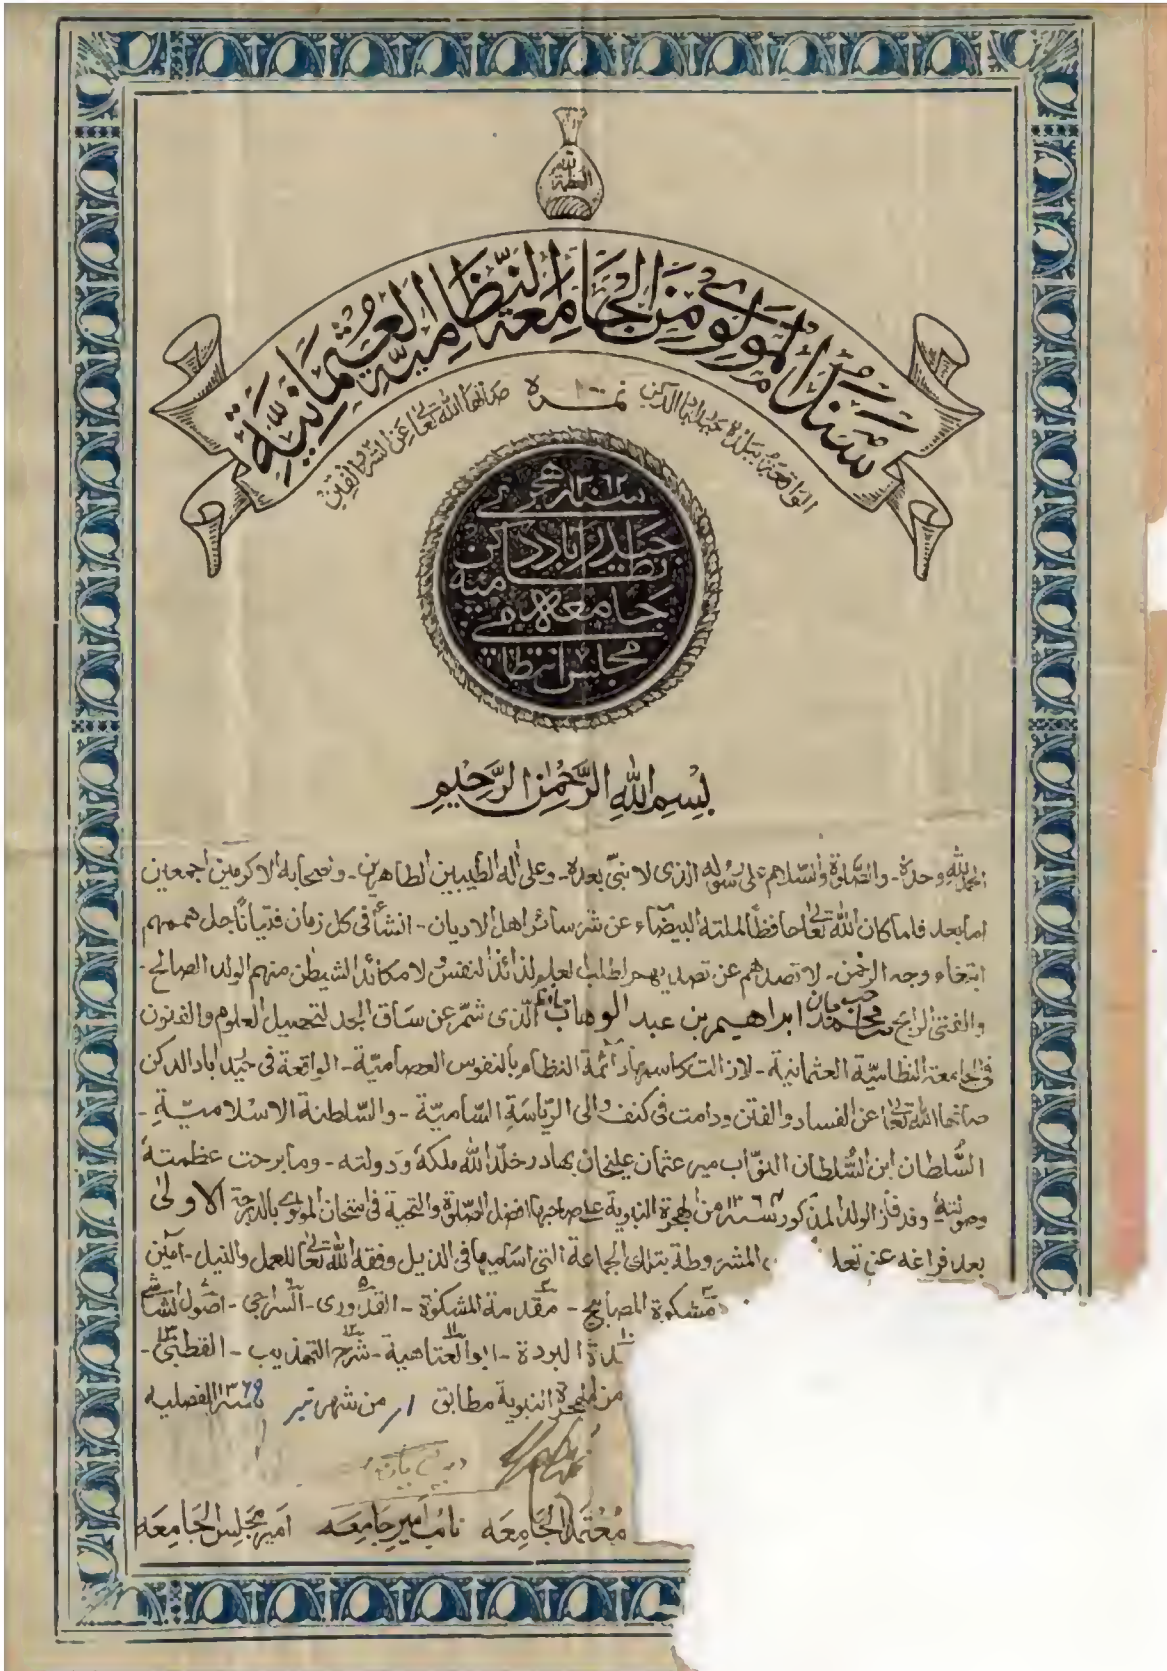 سند المولوي من الجامعة النظامية العثمانية
الواقعة ببلدة حيدرآباد الدكن
نمبره
صانها الله تعالى عن الشر والفتن
سنه ١٣٦٢ هجري
حيدرآباد دكن
نظاميه
جامعه
مجلس انتظامي
بِسْمِ اللهِ الرَّحْمٰنِ الرَّحِيْمِ
الحمد لله وحده - والصلوة والسلام على رسوله الذى لا نبى بعده - وعلى اٰله الطيبين الطاهرين - وصحابه الاكرمين اجمعين
اما بعد فلما كان الله تعالى حافظاً لملته البيضاء عن شر سائر اهل الاديان - انشأ فى كل زمان فتياناً جل هممهم
ابتغاء وجه الرحمٰن - لا تصدهم عن تصديهم لطلب العلوم لذائذ النفس ولا مكائد الشيطن منهم الولد الصالح -
والفتى الرابح محمد ابراهيم بن عبد الوهاب الذى شمر عن ساق الجد لتحصيل العلوم والفنون
فى الجامعة النظامية العثمانية - لازالت كاسمها دائمة النظام بالنفوس العصامية - الواقعة فى حيدراباد الدكن
صانها الله تعالى عن الفساد والفتن ودامت فى كنف والى الرياسة السامية - والسلطنة الاسلامية -
السلطان ابن السلطان النواب مير عثمان عليخان بهادر خلد الله ملكه ودولته - وما برحت عظمته
وصولته وقد فاز الولد المذكور من الهجرة النبوية على صاحبها افضل الصلوة والتحية فى امتحان المولوى بالدرجة الاولىٰ
بعد فراغه عن المشروطة بتلك الجماعة التى اساميها فى الذيل وفقه الله تعالى للعمل والنيل - اٰمين
مشكوة المصابيح - مقدمة المشكوة - القدورى - السراجى - اصول الشاشى
البردة - ابو العتاهية - شرح التهذيب - القطبى -
من الهجرة النبوية مطابق من شهر تير ١٣٦٩ الفصليه
معتمد الجامعه نائب امير جامعه امير مجلس الجامعه